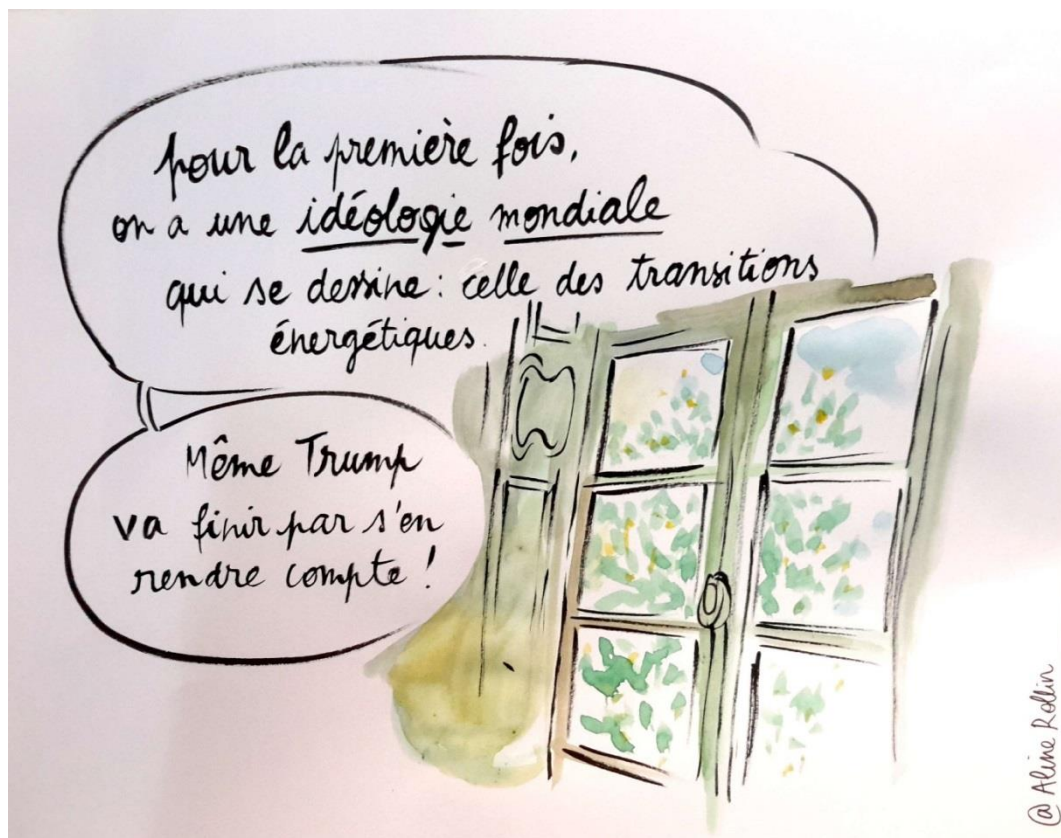 pour la première fois,
on a une idéologie mondiale
qui se dessine : celle des transitions
énergétiques.
Même Trump
va finir par s'en
rendre compte !
@ Aline Rollin